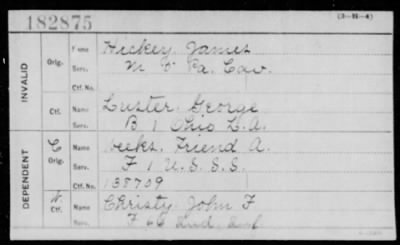 182875
(3-111-4)
INVALID
Orig.
Name Hickey James
Serv. M 5 Pa. Cav.
Ctf. No.
Ctf.
Name Luster George
Serv. B 1 Ohio L.A.
DEPENDENT
C Orig.
Name Weeks, Friend A.
Serv. F 1 U.S.S.S.
Ctf. No. 138709
Ctf.
Name Christy John F
Serv. F 66 Ind. Inf